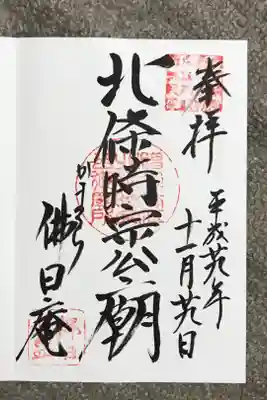 奉拝
平成廿九年
十一月廿九日
北條時宗公廟
かまくら
佛日庵